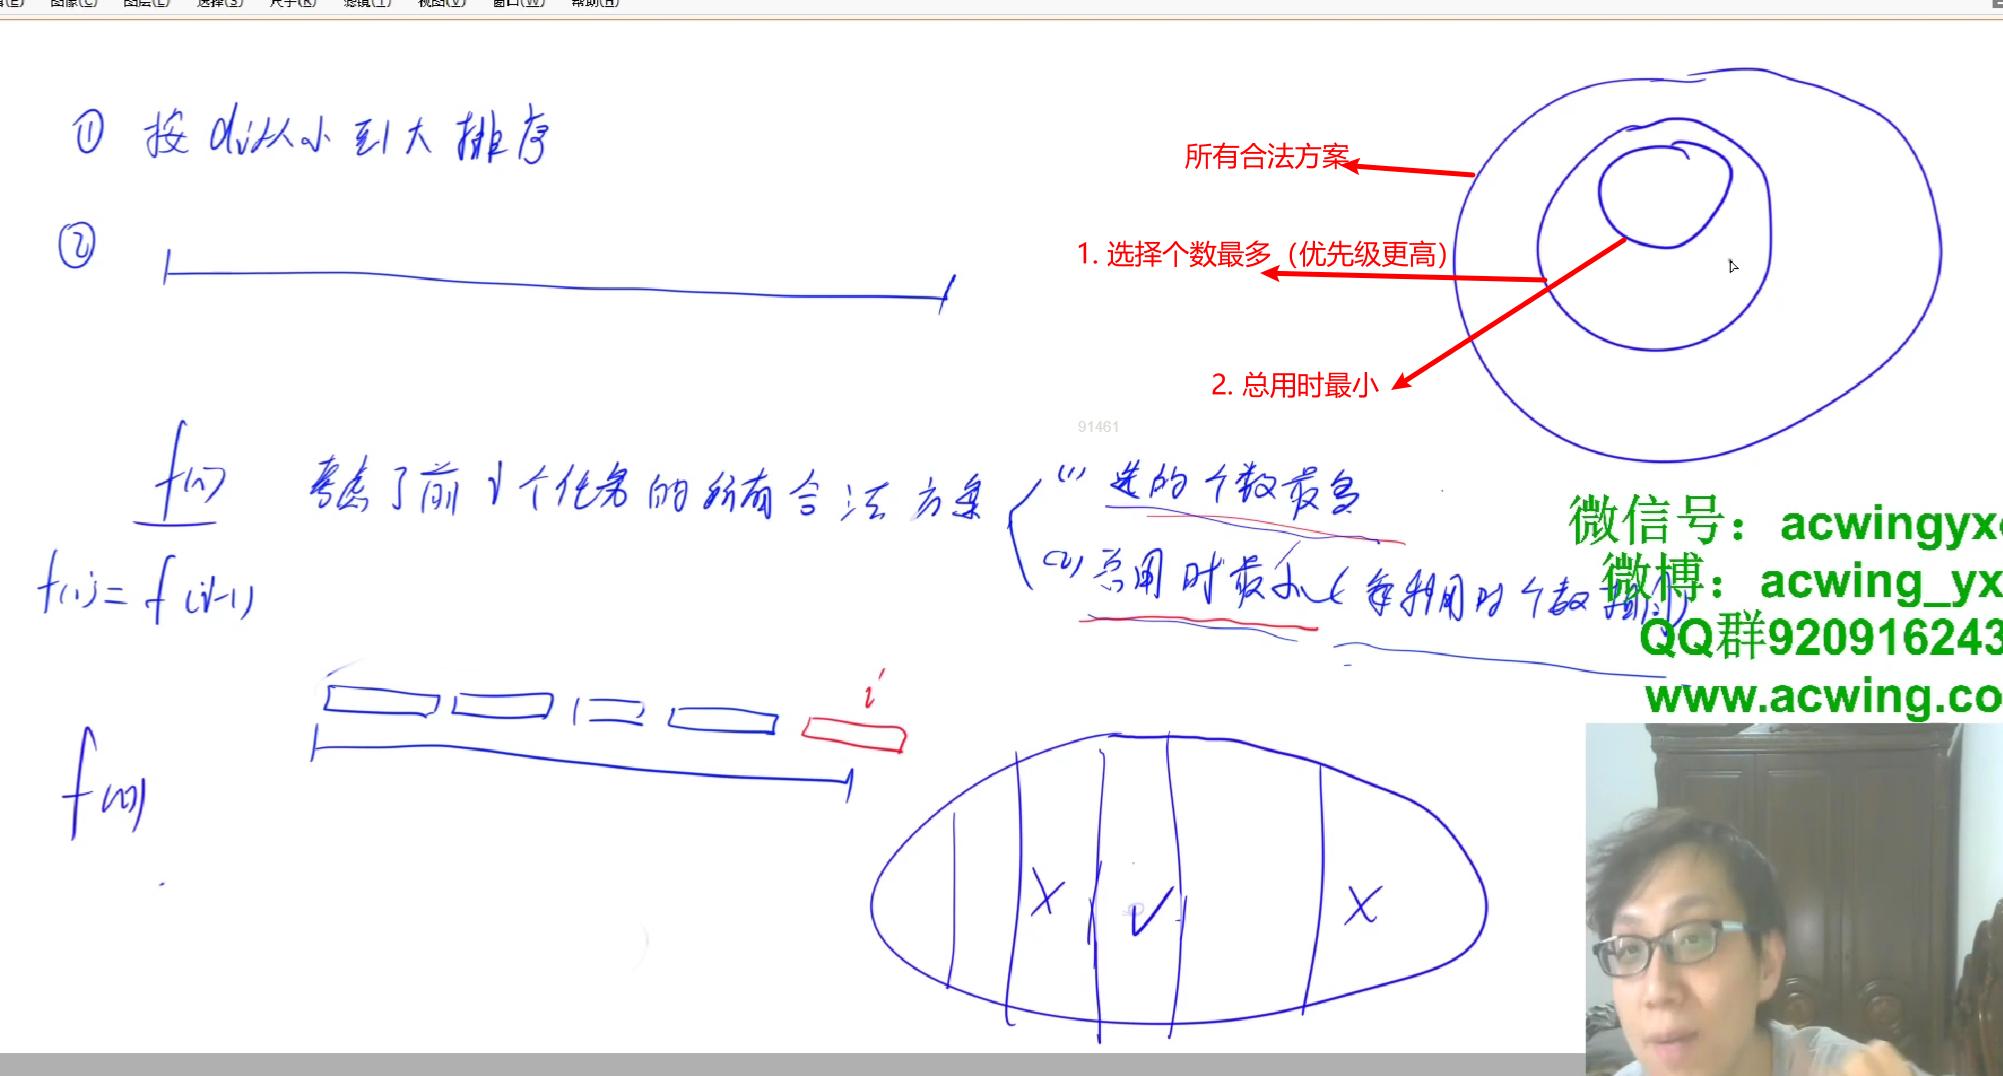 图像(C) 图层(L) 选择(S) 滤镜(T) 视图(V) 窗口(W) 帮助(H)
① 按di从小到大排序
所有合法方案
②
1. 选择个数最多（优先级更高）
2. 总用时最小
91461
f(i) 考虑了前i个任务的所有合法方案
(1) 选的个数最多
(2) 总用时最小
f(i) = f(i-1)
微信号：acwingyx
微博：acwing_yx
QQ群920916243
www.acwing.co
i
f(n)
X ✓ X